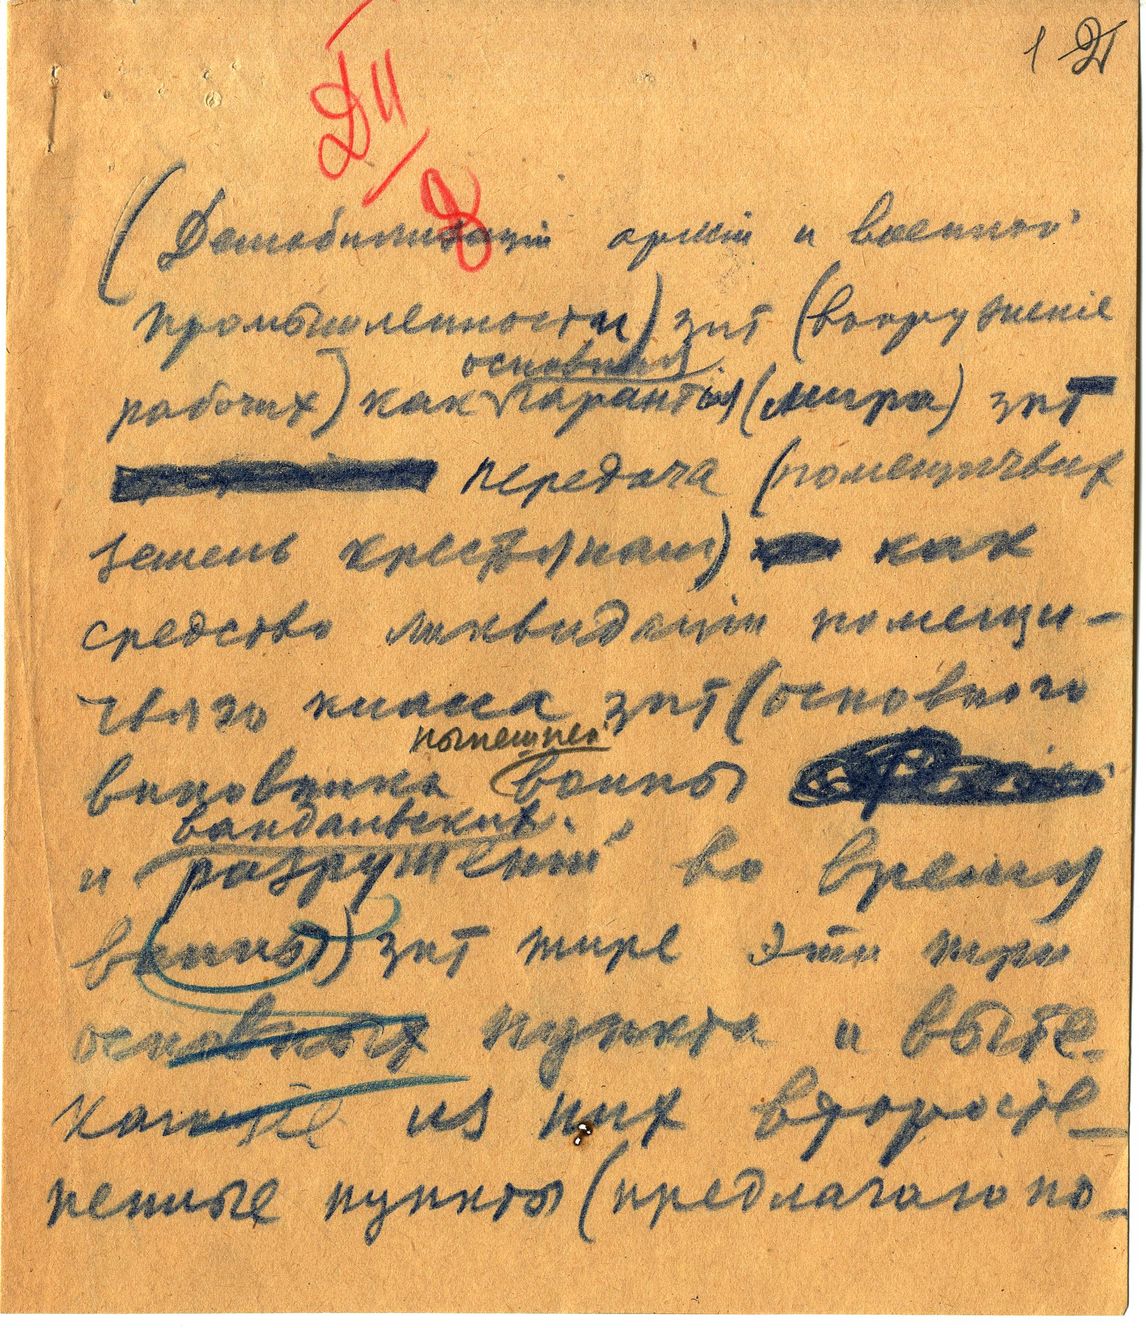 1 2
Д II / 8
(Демобилизацiи армiи и военной
промышленности) зпт (вооруженiе
основныя
рабочих) как гарантiи (мира) зпт
передача (помещичьих
земель крестьянам) как
средство ликвидацiи помещи-
чьяго класса зпт (основного
нынешней
виновника войны
вандальских
и разрушенiй во время
войны) зпт тире эти три
основных пункта и выте-
из них второсте-
пенные пункты (предлагаю по-